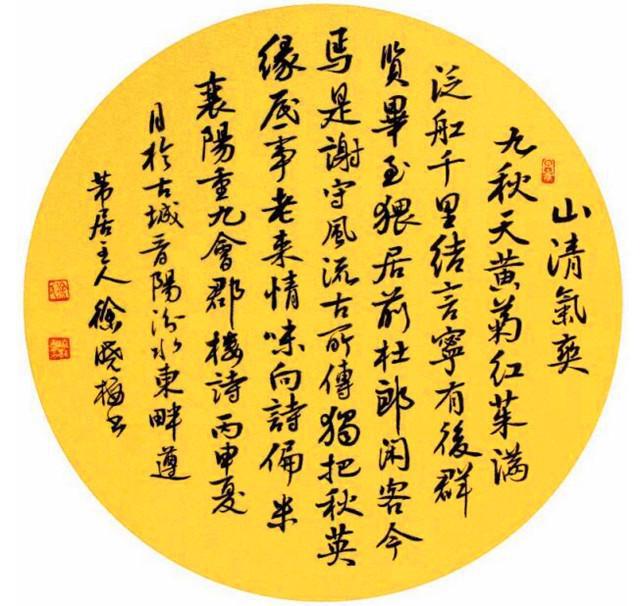 山清氣爽
九秋天黄菊红茱满
泛船千里结言寧有後群
贤畢至猥居前杜郎闲客今
焉是謝守風流古所傳獨把秋英
缘底事老来情味向詩偏米
襄陽重九會郡楼詩丙申夏
月於古城晋陽汾水東畔遵
芾居主人徐晓梅书